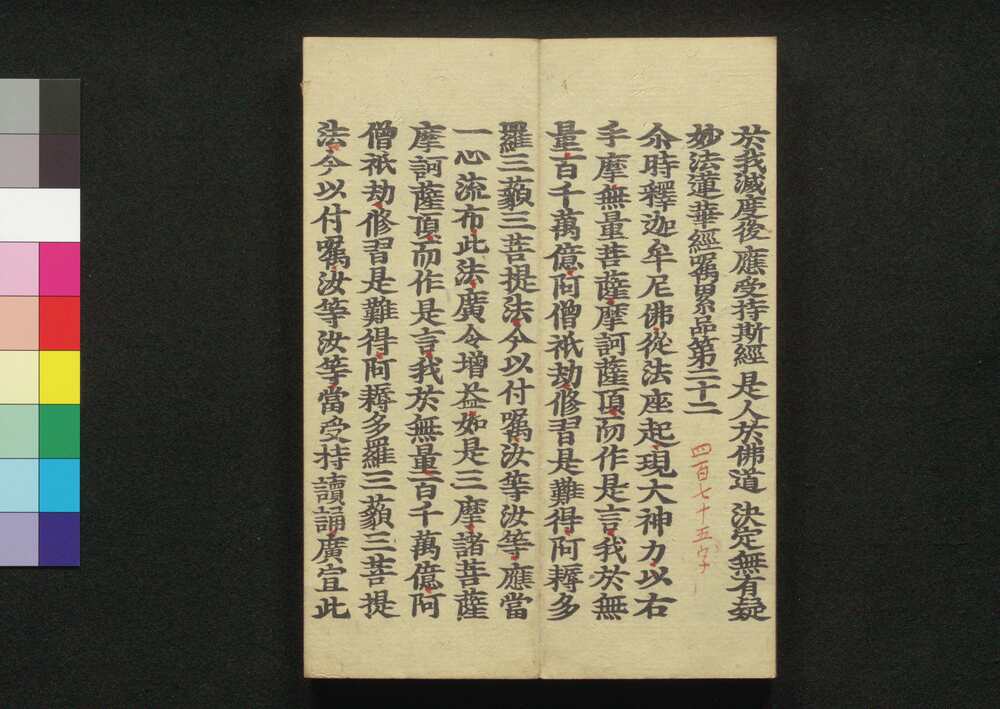 於我滅度後 應受持斯經 是人於佛道 決定無有疑
妙法蓮華經囑累品第二十二
四百七十五字
尒時釋迦牟尼佛從法座起現大神力以右
手摩無量菩薩摩訶薩頂而作是言我於無
量百千萬億阿僧祇劫修習是難得阿耨多
羅三藐三菩提法今以付囑汝等汝等應當
一心流布此法廣令增益如是三摩諸菩薩
摩訶薩頂而作是言我於無量百千萬億阿
僧祇劫修習是難得阿耨多羅三藐三菩提
法今以付囑汝等汝等當受持讀誦廣宣此